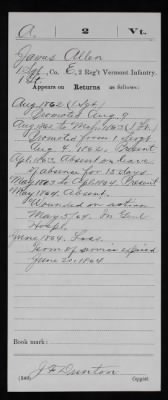 A. 2 Vt.
James Allen
Sgt., Co. E, 2 Reg't Vermont Infantry.
1 Lt.
Appears on Returns as follows:
Aug. 1862 (Sgt)
Promoted Aug. 9
Aug. 1862 to Mar. 1863 1 Lt.
Promoted from 1 Sgt.
Aug. 4, 1862. Present
Apl. 1863 Absent on leave
of absence for 15 days
May 1863 to Apl. 1864. Present
May 1864. Absent.
Wounded in action
May 5/64. In Genl
Hosp.
June 1864. Loss.
Term of service expired
June 20 1864
Book mark:
J. F. Dunton
Copyist.